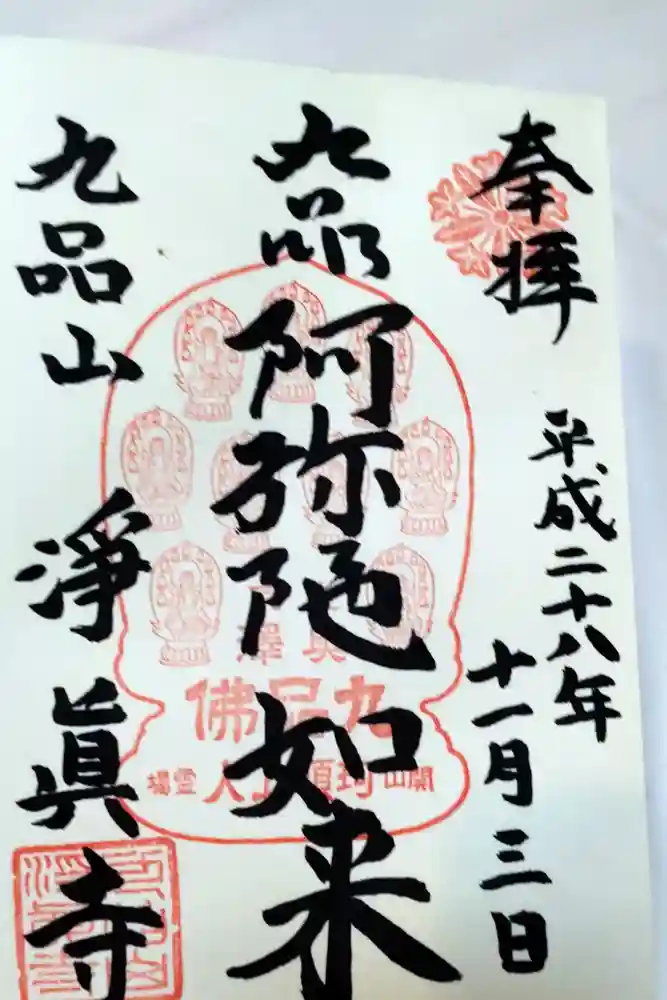 奉拝
平成二十八年
十一月三日
九品
阿弥陀如来
九品山 淨眞寺
奥澤
九品佛
開山珂碩上人霊場